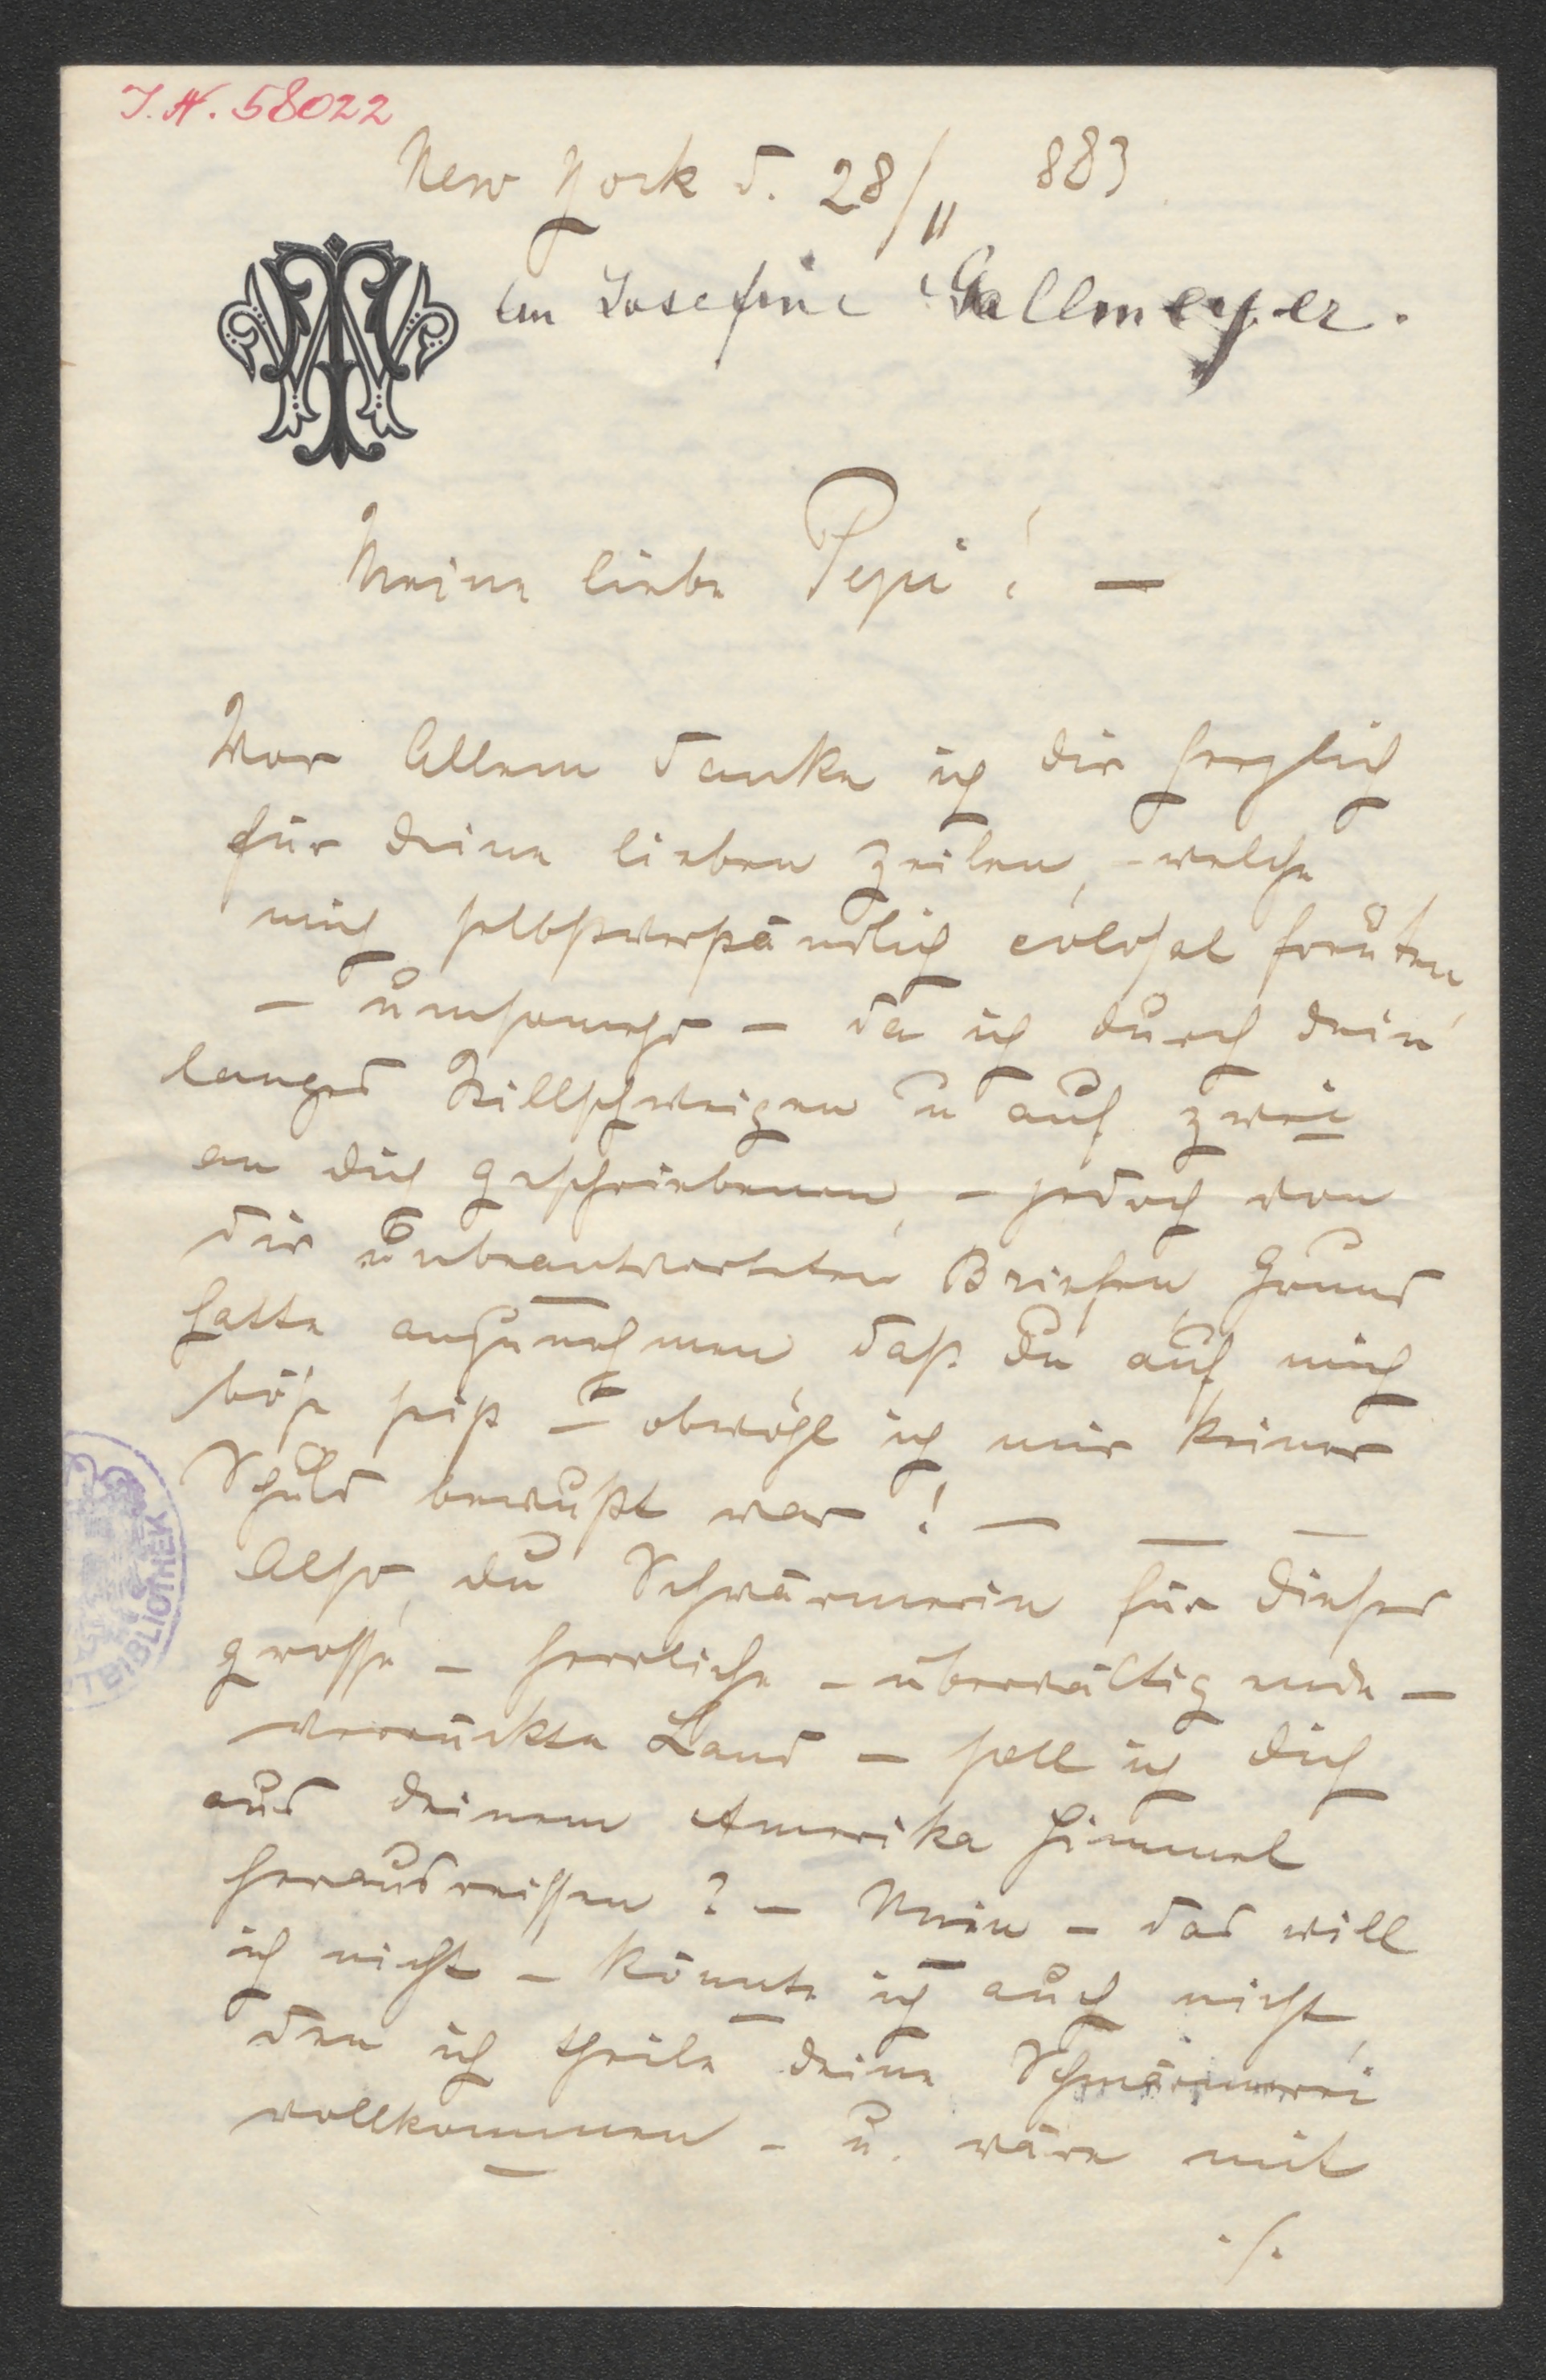 I.N. 58022
New York d. 28/11 883
an Josefine Gallmeyer.
Meine liebe Pepi! —
Vor Allem danke ich dir herzlich
für deine lieben Zeilen, – welche
mich selbstverständlich colosal freuten
– umsomehr – da ich durch dein
langes Stillschweigen u auf zwei
an dich geschriebenen, – jedoch von
dir unbeantworteten Briefen, Grund
hatte anzunehmen, daß du auf mich
böse seist – obwohl ich mir keiner
Schuld bewußt war! — — —
Also, du Schwärmerin für dieses
grosse – herrliche – überwältigende –
verrückte Land – soll ich dich
aus deinem Amerika Himmel
herausreissen? – Nein – das will
ich nicht – könnte ich auch nicht,
den ich theile deine Schwärmerei
vollkommen – u. wäre mit
./.
TBIBLIOTHEK